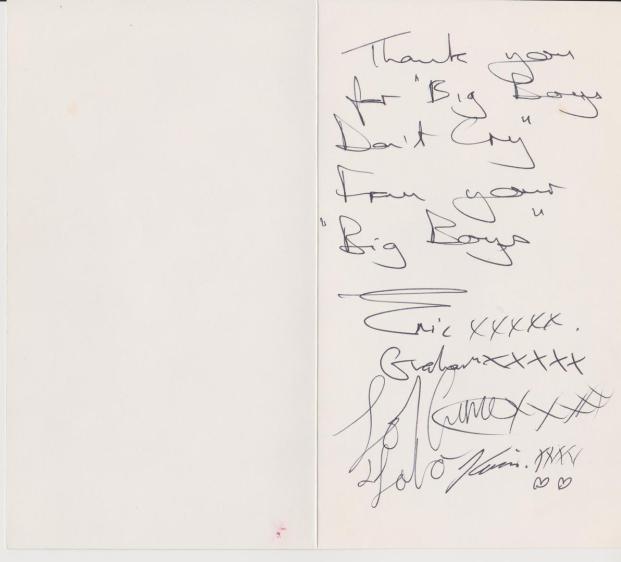 Thank you
for "Big Boys
Don't Cry"
From your
"Big Boys"
Eric xxxxx.
Graham xxxxx
Lol Creme xxxxx
Kevin. xxxx